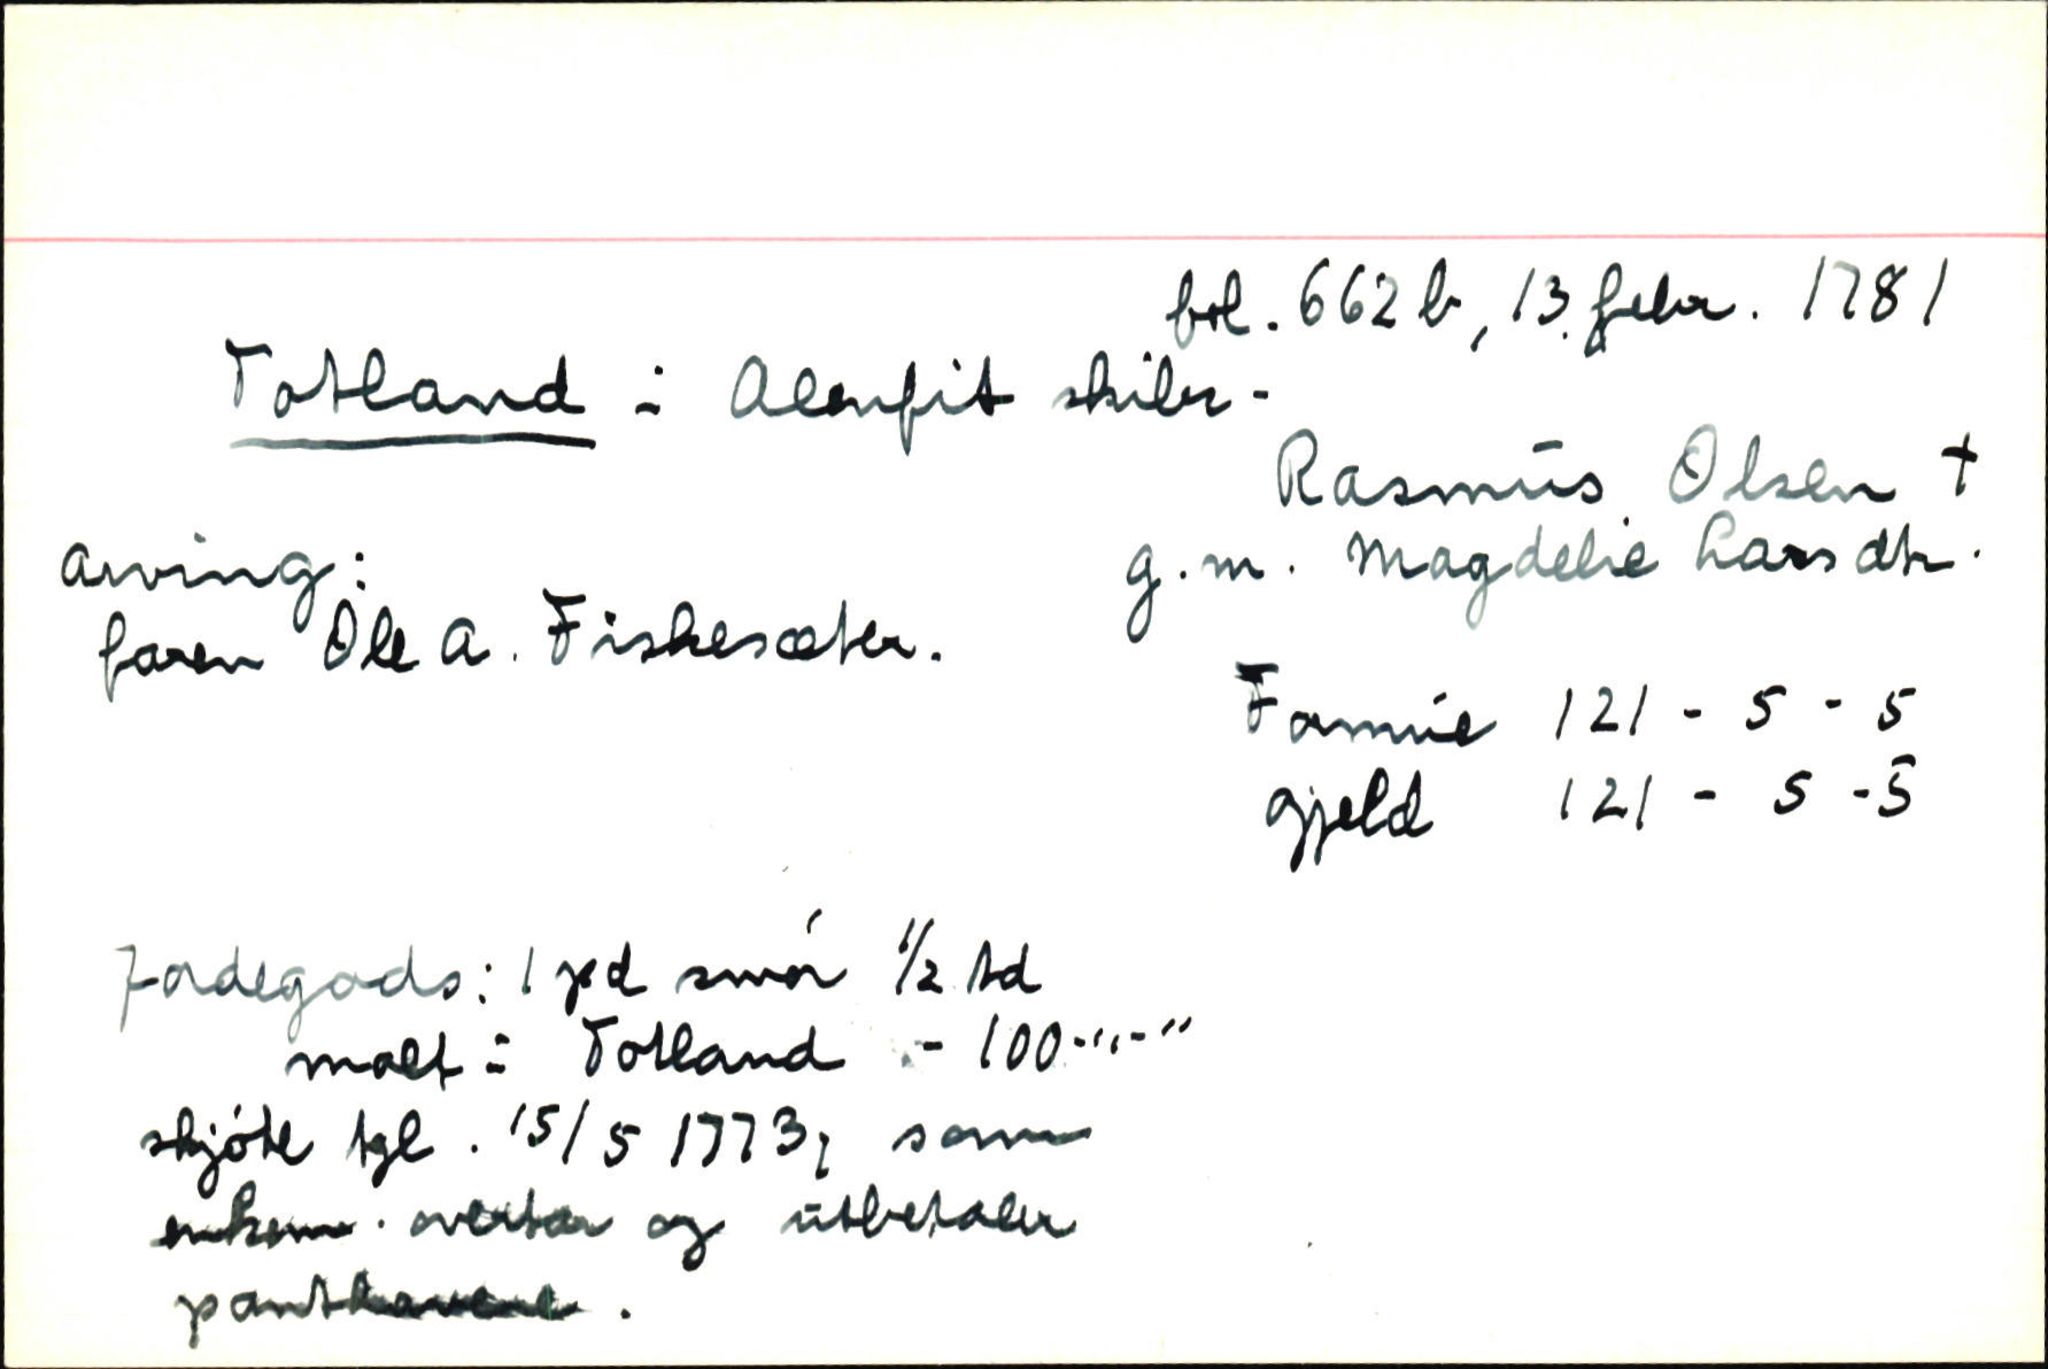 fol. 662 b, 13. febr. 1781
Totland i Alenfit skibr-
Rasmus Olsen †
g.m. Magdelie Larsdtr.
arving:
faren Ole A. Fiskesæter.
Formue 121 - 5 - 5
gjeld 121 - 5 - 5
Jordegods: 1 pd smör 1/2 td
malt i Totland - 100-"-"
skjöte tgl. 15/5 1773, som
enken overtar og utbetaler
panthavere.